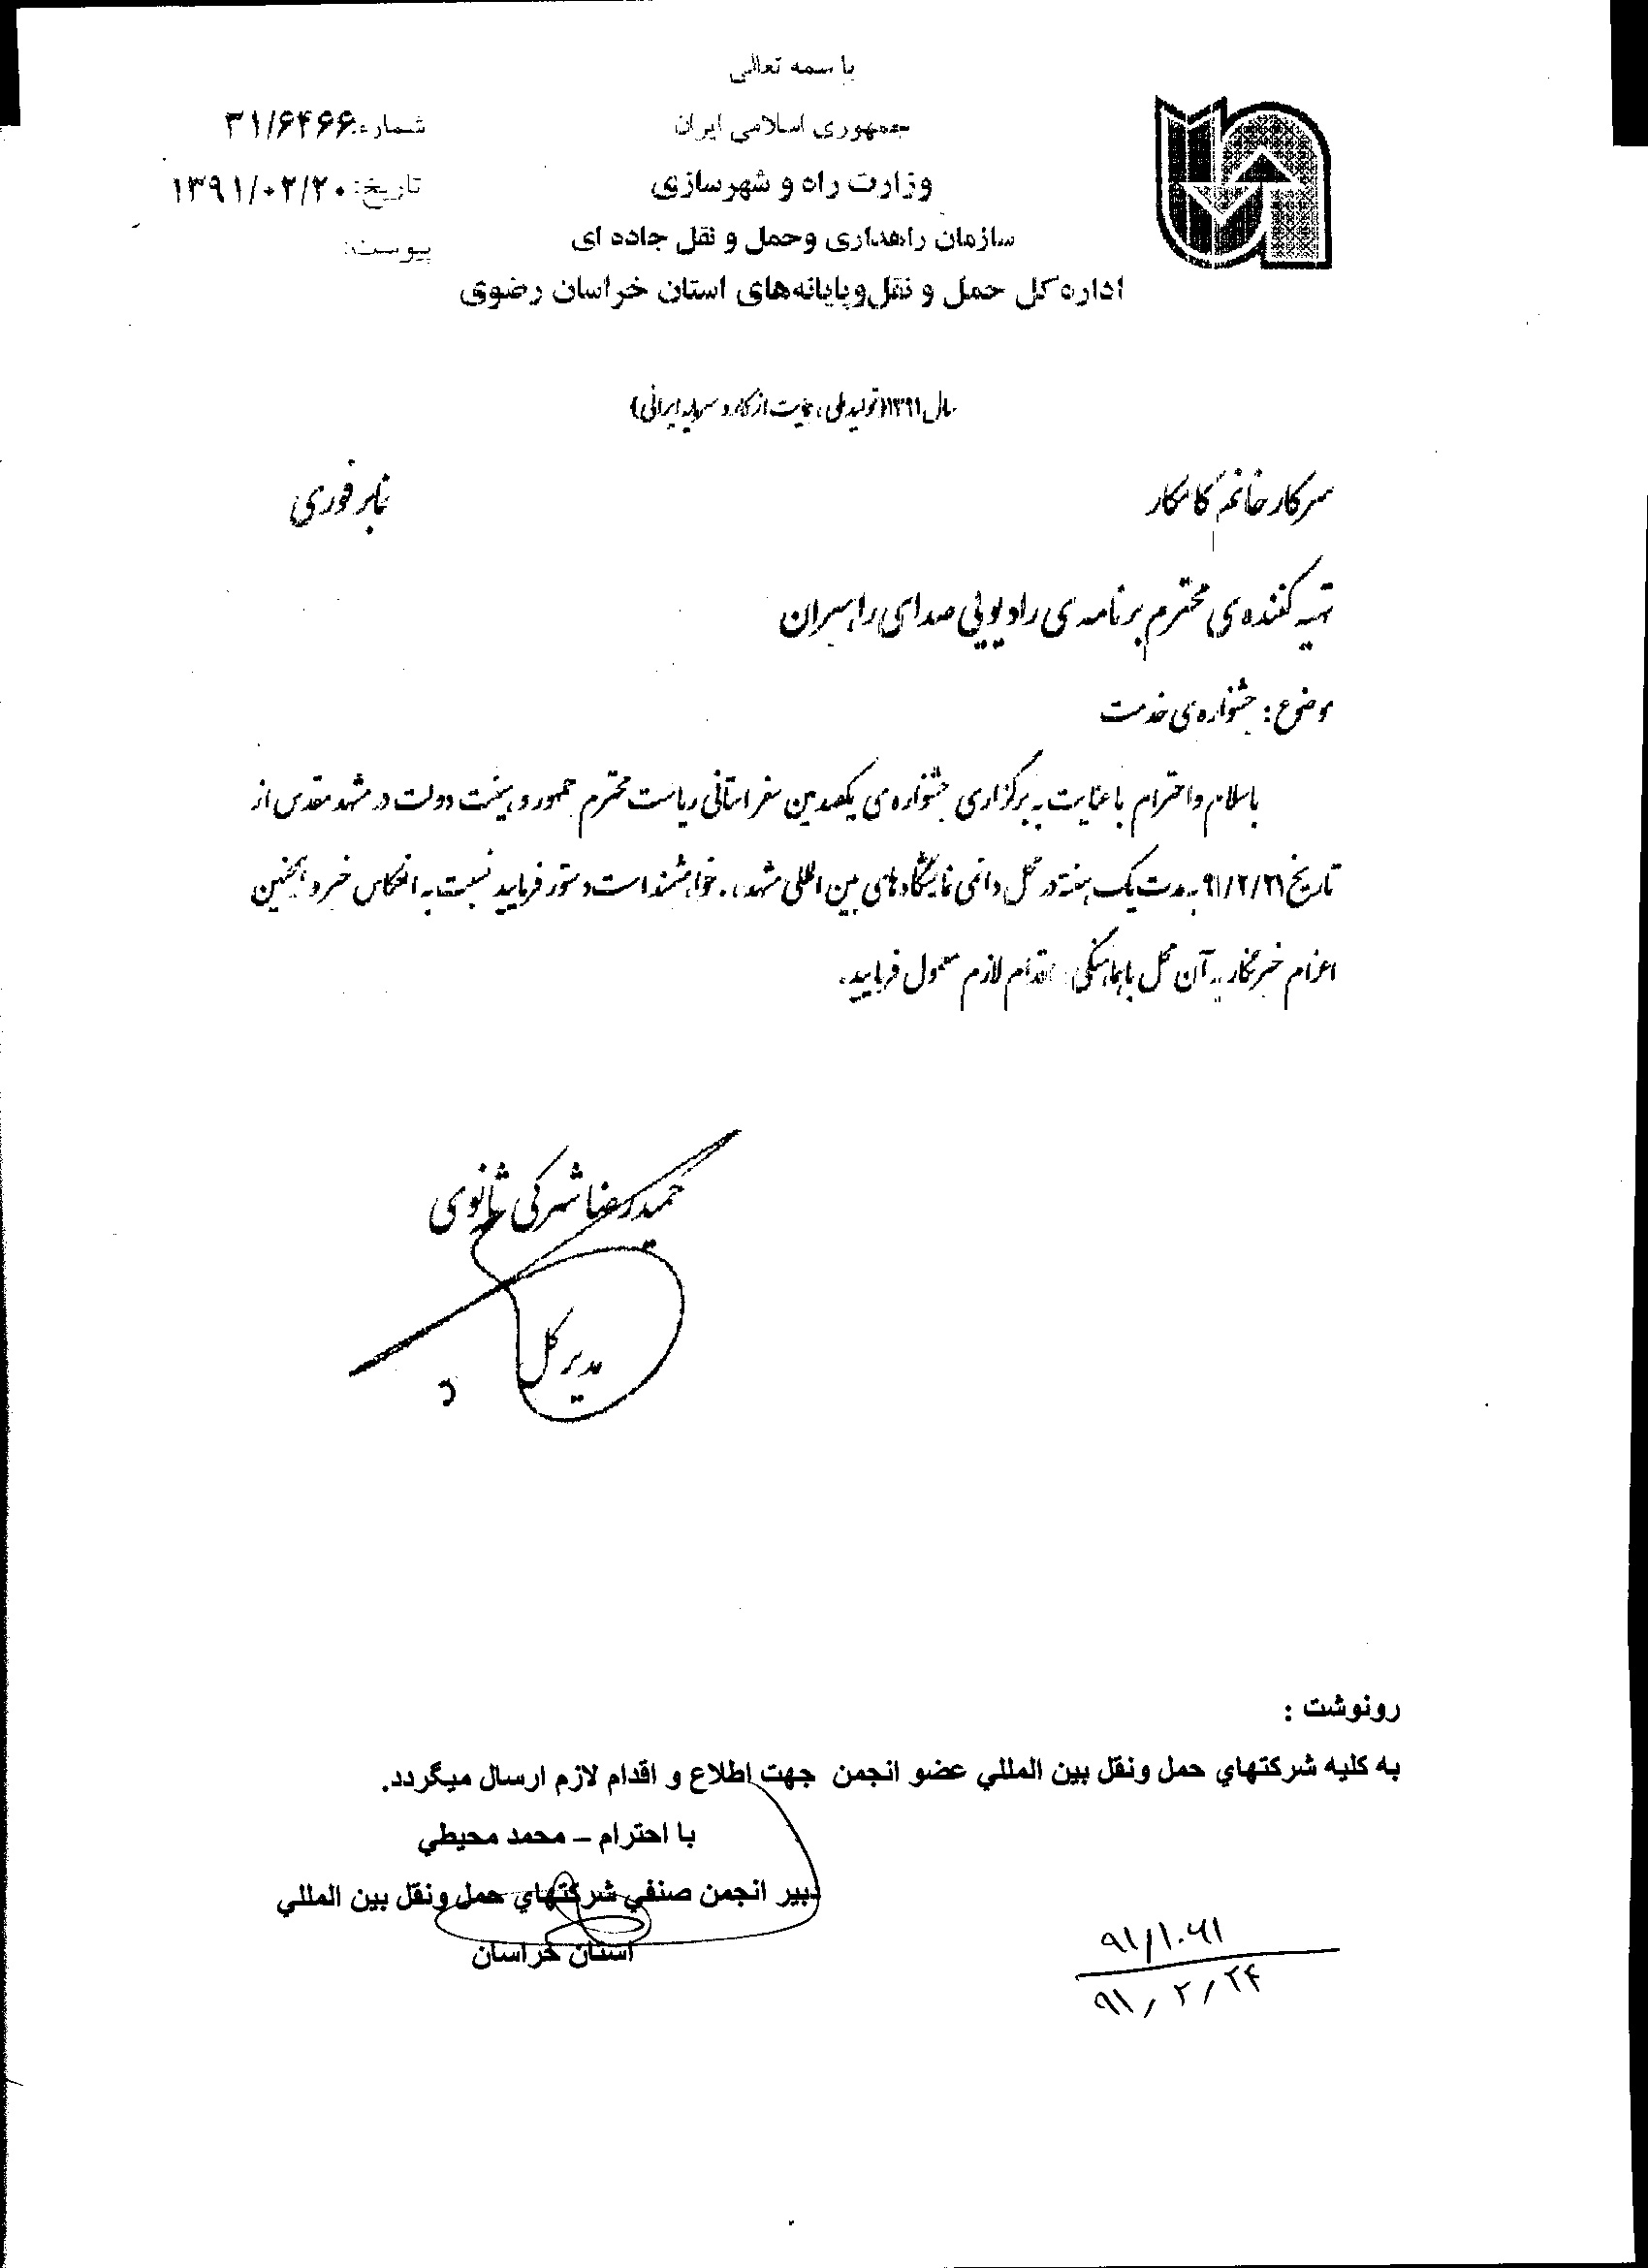 با سمه تعالی
جمهوری اسلامی ایران
وزارت راه و شهرسازی
سازمان راهداری وحمل و نقل جاده ای
اداره کل حمل و نقل وپایانه‌های استان خراسان رضوی
شماره: ۳۱/۶۴۶۶
تاریخ: ۱۳۹۱/۰۲/۲۰
پیوست:
سال ۱۳۹۱(تولید ملی، حمایت از کار و سرمایه ایرانی)
سرکار خانم کامکار
نمابر فوری
تهیه کننده‌ی محترم برنامه‌ی رادیویی صدای راهبران
موضوع: جشنواره‌ی خدمت
باسلام و احترام با عنایت به برگزاری جشنواره‌ی یکصدمین سفر استانی ریاست محترم جمهور و هیئت دولت در مشهد مقدس از
تاریخ ۹۱/۲/۲۱ به مدت یک هفته در محل دائمی نمایشگاه‌های بین المللی مشهد، خواهشمند است دستور فرمایید نسبت به انعکاس خبر و همچنین
اعزام خبرنگار به آن محل با هماهنگی اقدام لازم معمول فرمایید.
حمیدرضا شهرکی ثانوی
مدیر کل
رونوشت :
به کلیه شرکتهاي حمل ونقل بین المللي عضو انجمن جهت اطلاع و اقدام لازم ارسال میگردد.
با احترام – محمد محیطي
دبیر انجمن صنفي شرکتهاي حمل ونقل بین المللي
استان خراسان
۹۱/۱۰۶۱
۹۱/۲/۲۴